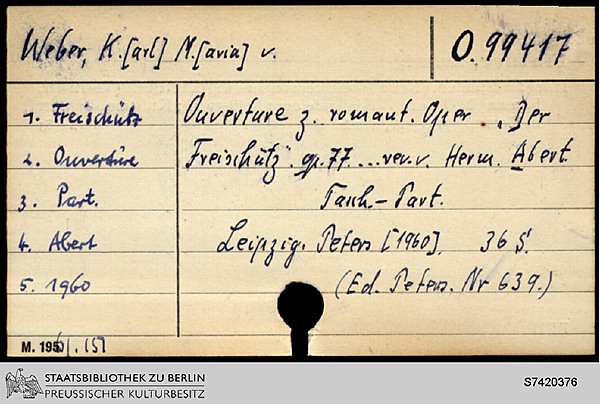 Weber, K.[arl] M.[aria] v.
O.99417
1. Freischütz
2. Ouvertüre
3. Part.
4. Abert
5. 1960
Ouverture z. romant. Oper „Der
Freischütz" op. 77 ... rev. v. Herm. Abert.
Tasch.-Part.
Leipzig. Peters [1960]. 36 S.
(Ed. Peters. Nr 639.)
M. 1951.151
STAATSBIBLIOTHEK ZU BERLIN
PREUSSISCHER KULTURBESITZ
S7420376